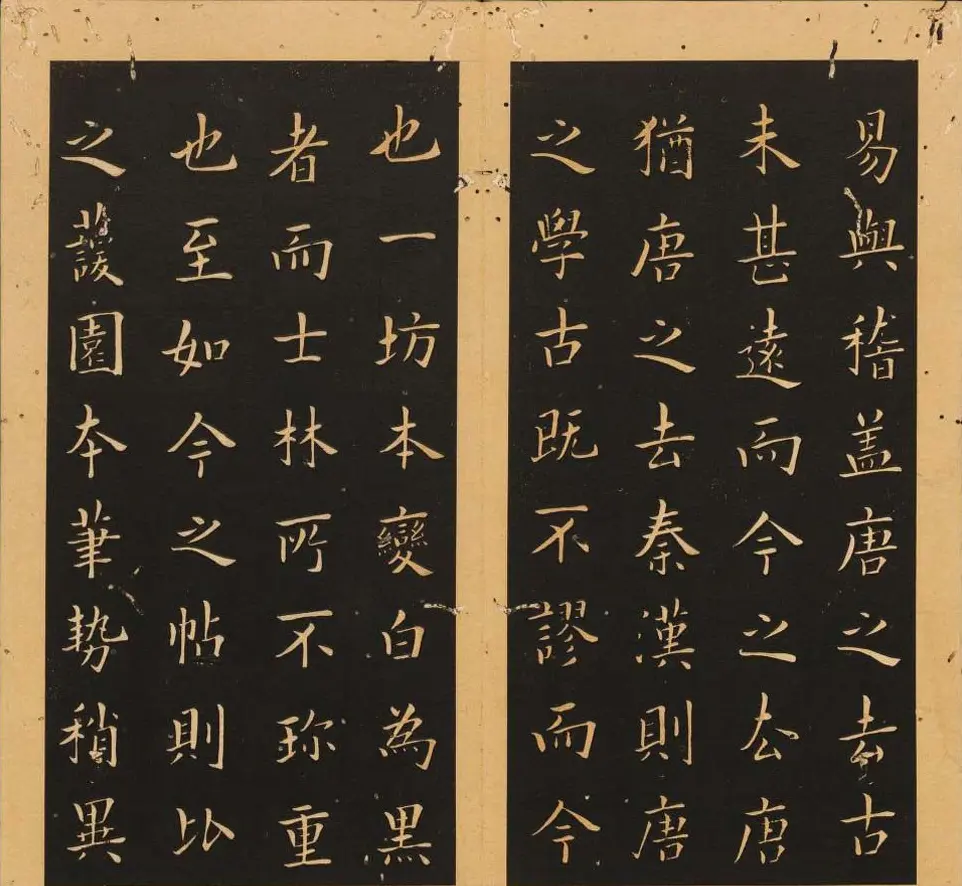 易與稽盖唐之去古
未甚遠而今之厺唐
猶唐之去秦漢則唐
之學古既不謬而今
也一坊本變白為黑
者而士林所不珎重
也至如今之帖則比
之蘐園本筆勢稍異